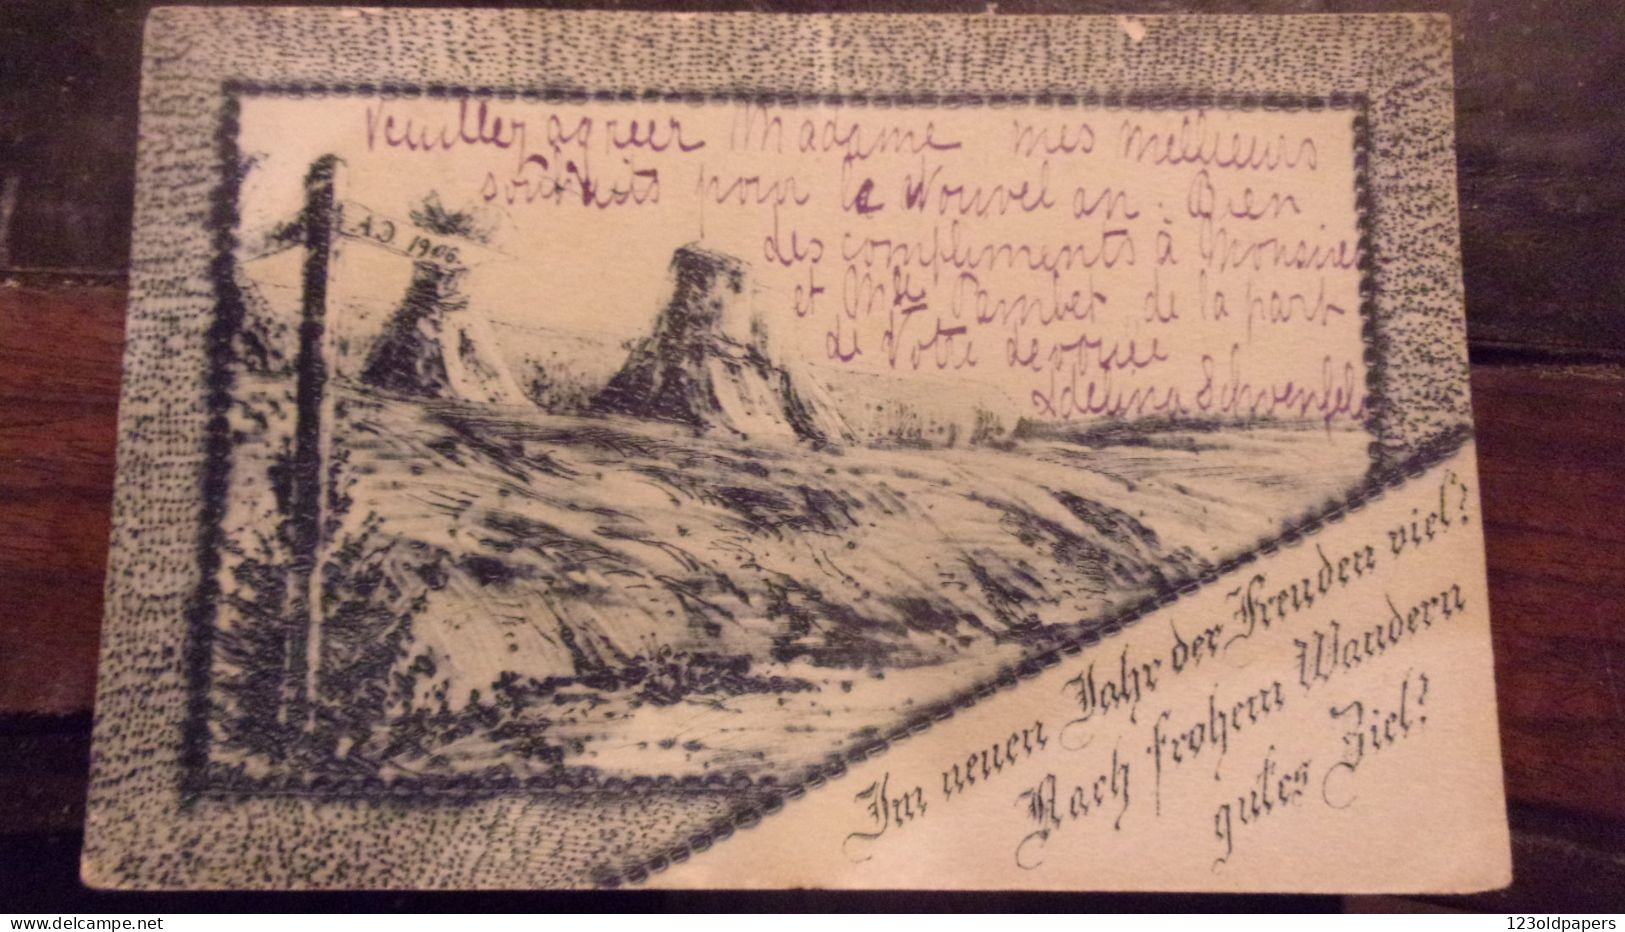 Veuillez agreer Madame mes meilleurs
souhaits pour le Nouvel an. Bien
des compliments à Monsieur
et Mlle Pambet de la part
de Votre dévouée
Adelina Schwenfel
A.D 1906.
Im neuen Jahr der Freuden viel?
Nach frohem Wandern
gutes Ziel?
123oldpapers